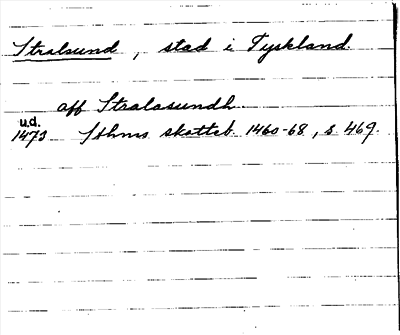 Stralsund, stad i Tyskland.
aff Stralasundh
u.d.
1473 Sthms skatteb. 1460-68, s. 469.